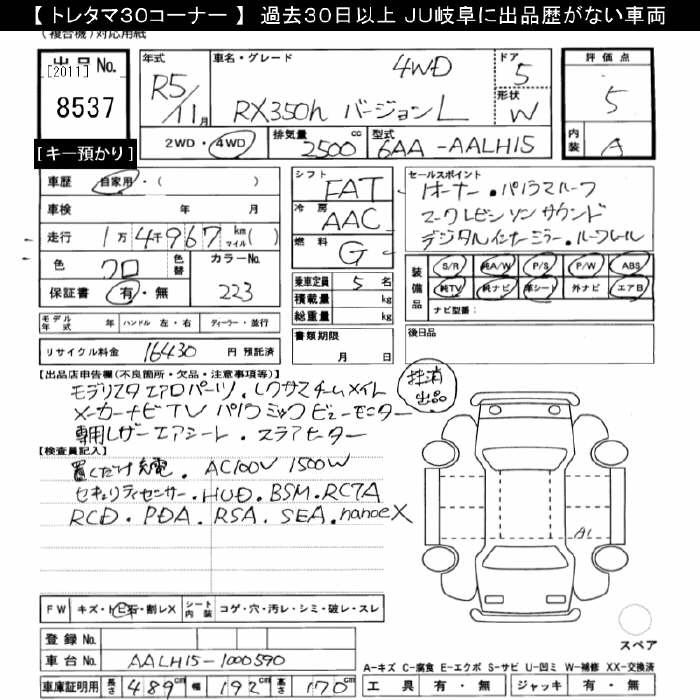 【 トレタマ３０コーナー 】 過去３０日以上 ＪＵ岐阜に出品歴がない車両
(複合機)対応用紙
出品No.
[2011]
8537
[キー預かり]
年式 R5/11月
車名・グレード 4WD
RX350h バージョンL
ドア 5
形状 W
評価点 5
内装 A
2WD・4WD
排気量 2500 cc
型式 6AA-AALH15
車歴 自家用・( )
車検 年 月
走行 1万4千967 km マイル( )
色 クロ 色替 カラーNo.
保証書 有・無 223
シフト FAT
冷房 AAC
燃料 G
乗車定員 5 名
積載量 kg
総重量 kg
書類期限
月 日
セールスポイント
1オーナー・パノラマルーフ
マークレビンソンサウンド
デジタルインナーミラー・ルーフレール
装備品 S/R 純A/W P/S P/W ABS
純TV 純ナビ 革シート 外ナビ エアB
ナビ型番:
後日品
モデル年式 年 ハンドル 左・右 ディーラー・並行
リサイクル料金 16430 円 預託済
【出品店申告欄(不良箇所・欠品・注意事項等)】
モデリスタエアロパーツ・レクサスチームメイト
メーカーナビTV パノラミックビューモニター
専用レザーエアシート・ステアヒーター
抹消出品
【検査員記入】
置くだけ充電・AC100V 1500W
セキュリティセンサー・HUD・BSM・RCTA
RCD・PDA・RSA・SEA・nanoeX
A1
FW キズ・トビ石・割レX シート内装 コゲ・穴・汚レ・シミ・破レ・スレ
スペア
登録No.
車台No. AALH15-1000590
車庫証明用 長さ 489cm 幅 192cm 高さ 170cm
A-キズ C-腐食 E-エクボ S-サビ U-凹ミ W-補修 XX-交換済
工具 有・無 ジャッキ 有・無